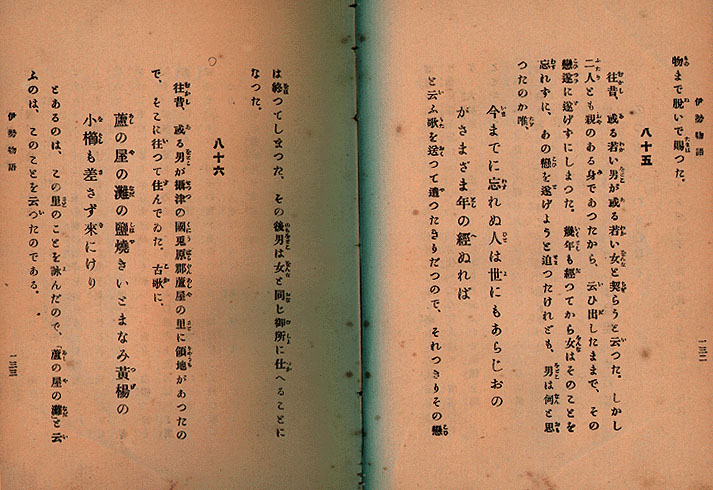 伊勢物語
物まで脱いで賜つた。
八十五
往昔、或る若い男が或る若い女と契らうと云つた。しかし
二人とも親のある身であつたから、云ひ出したままで、その
戀遂に遂げずにしまつた。幾年も經つてから女はそのことを
忘れずに、あの戀を遂げようと迫つたけれども、男は何と思
つたのか唯、
今までに忘れぬ人は世にもあらじおの
がさまざま年の經ぬれば
と云ふ歌を送つて遣つたきりだつので、それつきりその戀
一三二
は終つてしまつた。その後男は女と同じ御所に仕へることに
なつた。
八十六
往昔、或る男が攝津の國兎原郡蘆屋の里に領地があつたの
で、そこに往つて住んでゐた。古歌に、
蘆の屋の灘の鹽燒きいとまなみ黃楊の
小櫛も差さず來にけり
とあるのは、この里のことを詠んだので、「蘆の屋の灘」と云
ふのは、このことを云つたのである。
伊勢物語
一三三